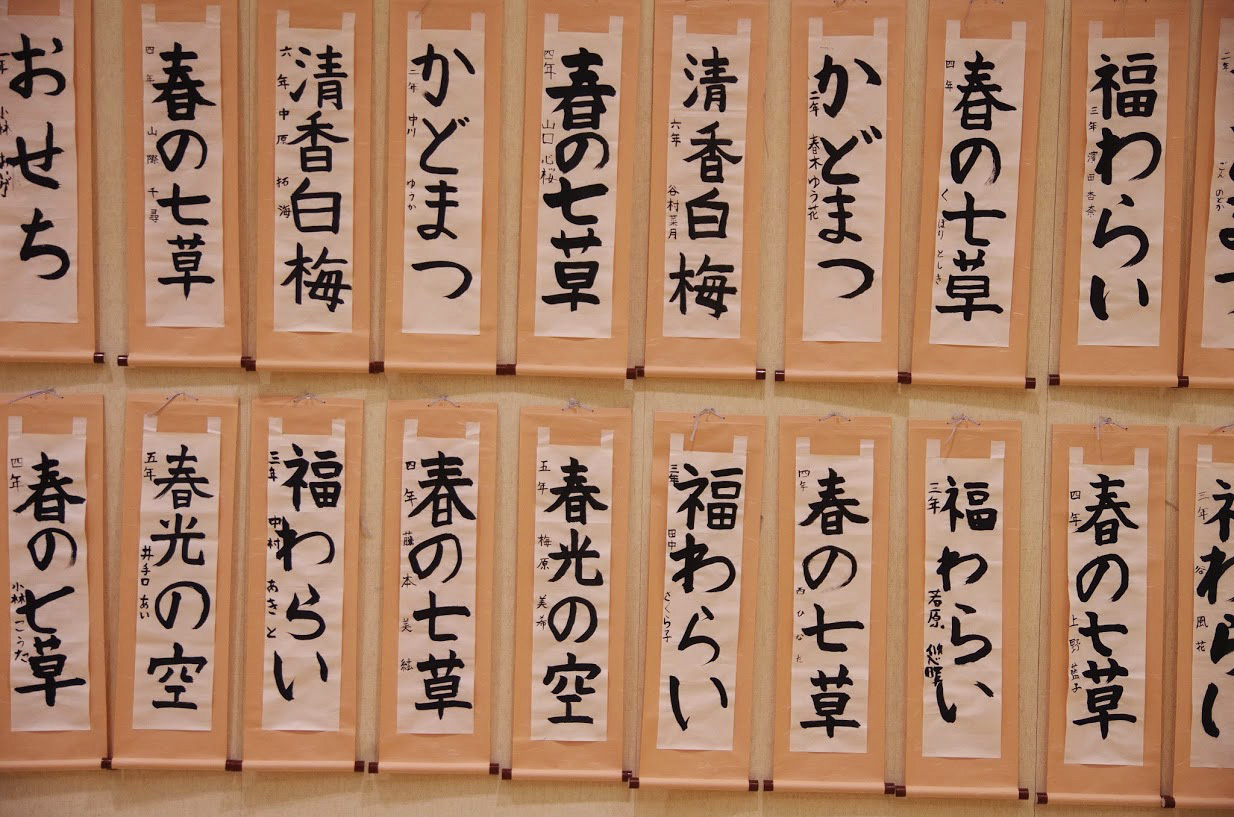 おせち
一年
小林
春の七草
四年
山際千尋
清香白梅
六年
中原拓海
かどまつ
二年
中川ゆうか
春の七草
四年
山口心桜
清香白梅
六年
谷村菜月
かどまつ
二年
春木ゆう花
春の七草
四年
くぼりとしき
福わらい
三年
濱田杏奈
二年
こんのどか
春の七草
四年
小林こうた
春光の空
五年
井手口あい
福わらい
三年
中村あきと
春の七草
四年
藤本美絃
春光の空
五年
梅原美希
福わらい
三年
田中さくら子
春の七草
四年
西ひなた
福わらい
三年
若原悠暖
春の七草
四年
上野藍子
福わらい
三年
谷風花